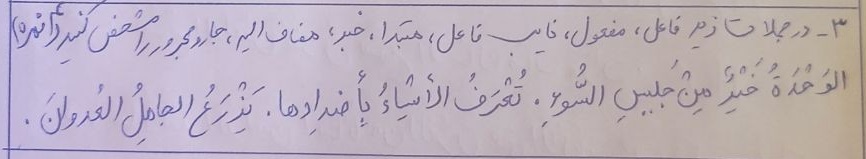 ۳- در جملات زیر فاعل، مفعول، نایب فاعل، مبتدا، خبر، مضاف الیه، جارومجرور را مشخص کنید (۲ نمره)
الوَحْدَةُ خَيْرٌ مِنْ جَليسِ السُّوءِ. تُعْرَفُ الأشياءُ بِأضدادِها. يَزْرَعُ الجاهِلُ العُدوانَ.